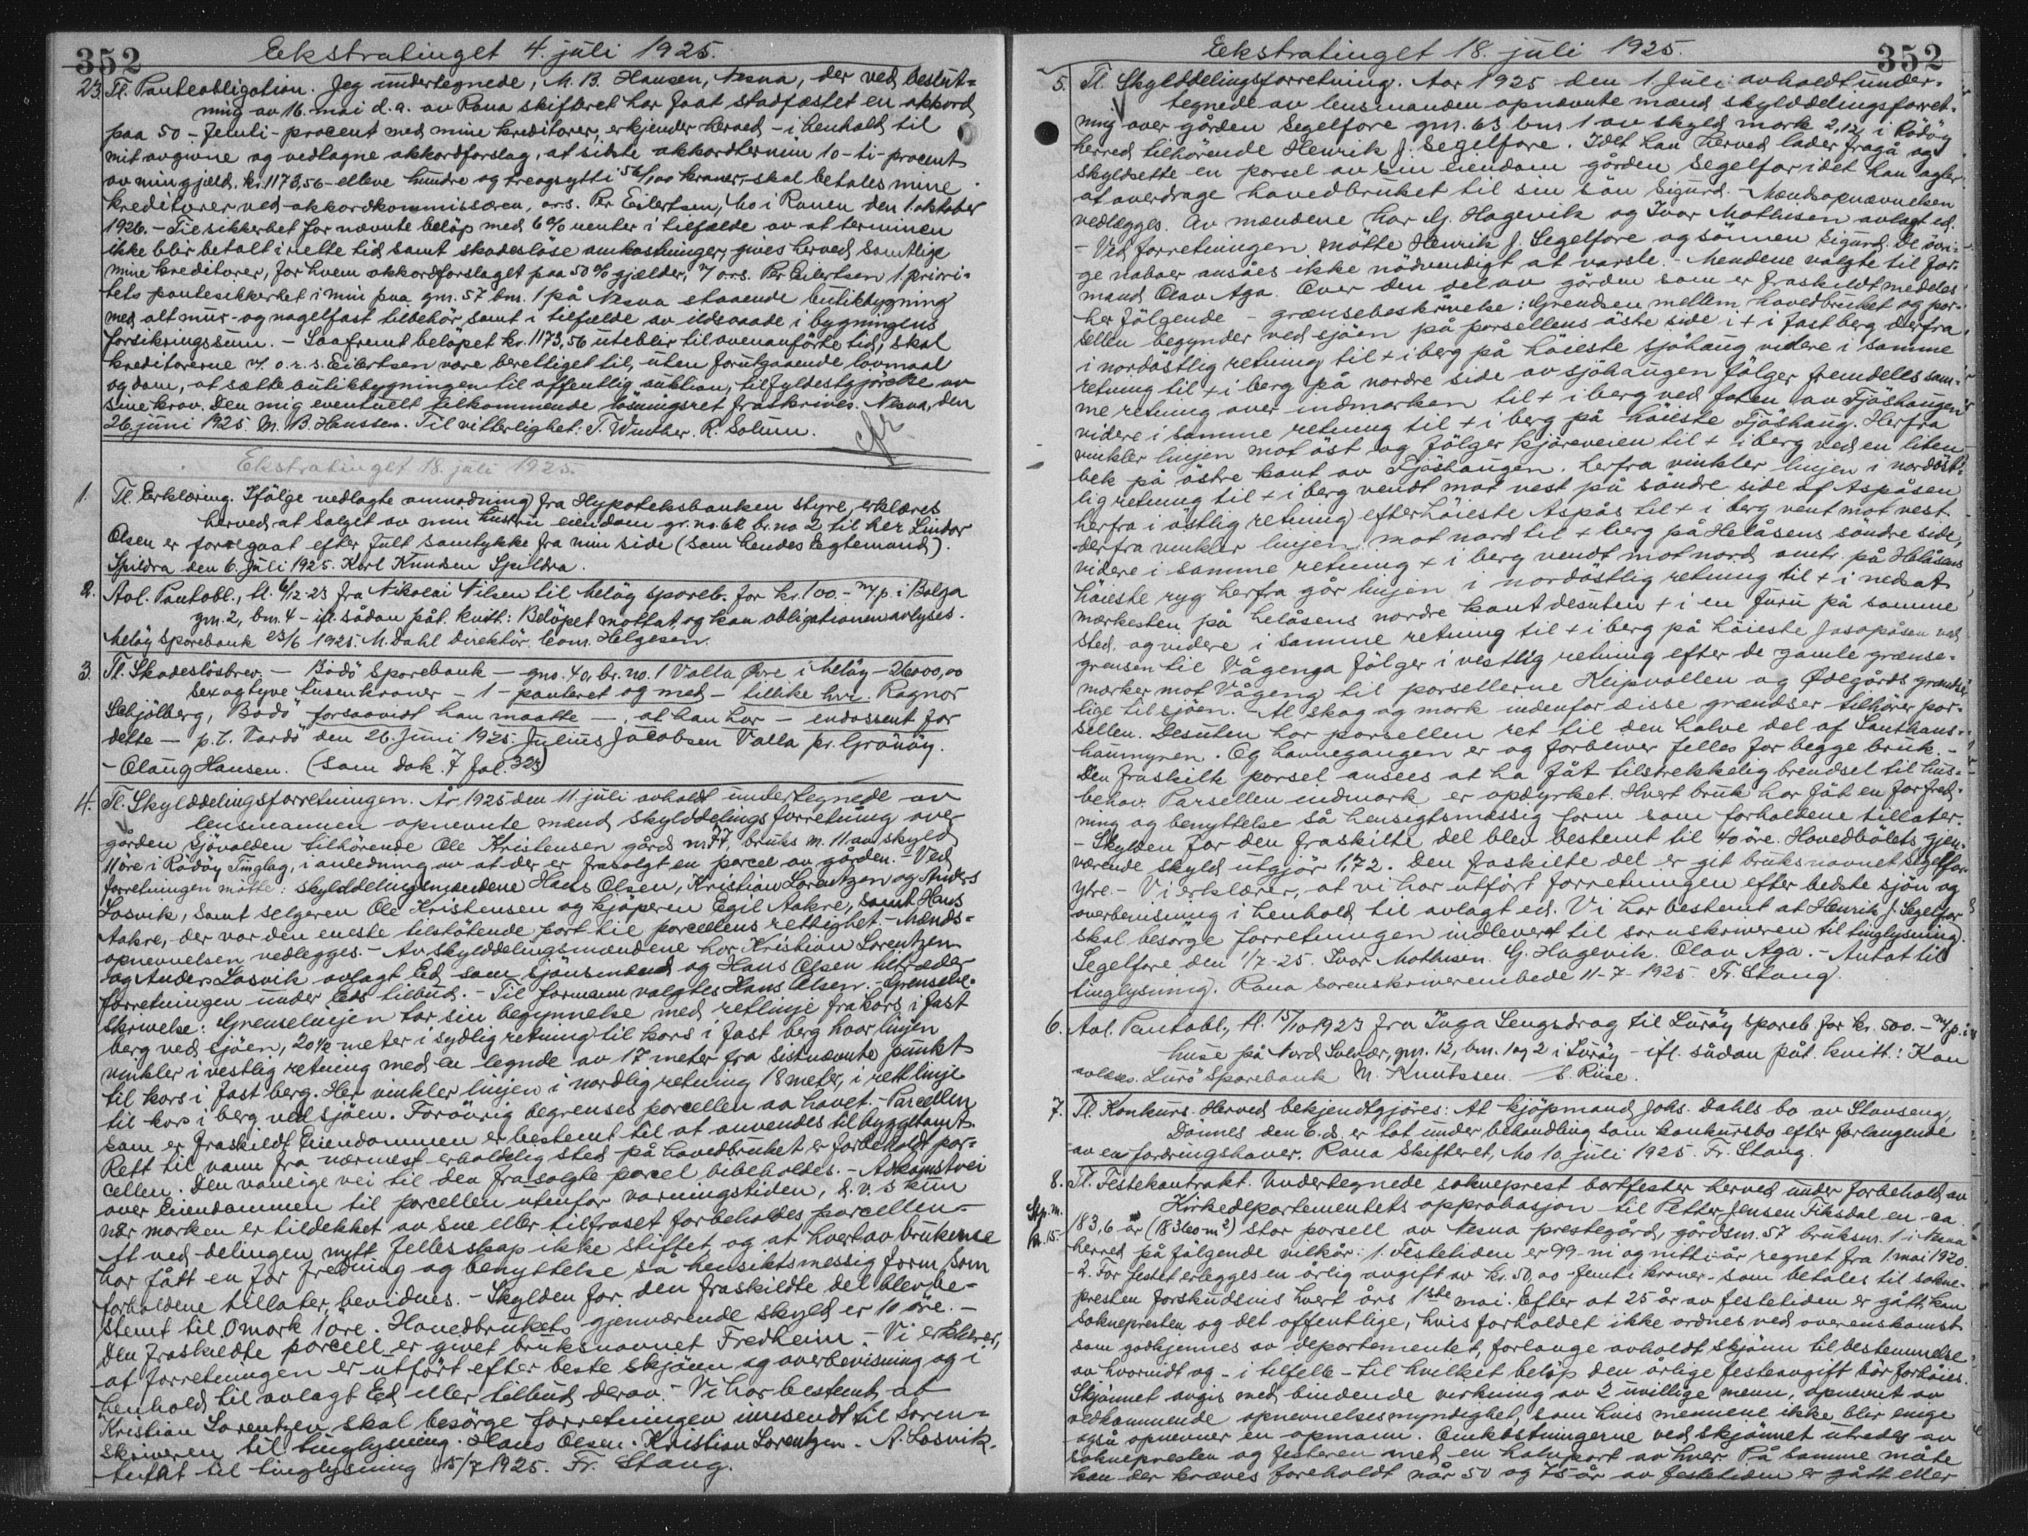 352
Ekstratinget 4. juli 1925.
23. Tl. Panteobligation. Jeg undertegnede, M. B. Hansen, Nesna, der ved beslut-
ning av 16. mai d.a. av Rana skifteret har faat stadfæstet en akkord
paa 50 - femti - procent med mine kreditorer, erkjender herved - i henhold til
mit avgivne og vedtagne akkordforslag, at sidste akkordtermin 10 - ti - procent
av min gjeld, kr. 1173,56 - elleve hundre og treogsytti 56/100 kroner, skal betales mine
kreditorer ved akkordkommissæren, o.r.s. Per Eilertsen, Mo i Ranen den 1. oktober
1926. - Til sikkerhet for nævnte beløp med 6% renter i tilfælde av at terminen
ikke blir betalt i rette tid samt skadesløse omkostninger, gives herved samtlige
mine kreditorer, for hvem akkordforslaget paa 50% gjelder, v/ o.r.s. Per Eilertsen 1 priori-
tets pantesikkerhet i min paa gnr. 57 bnr. 1 på Nesna staaende butikbygning
med alt mur- og nagelfast tilbehør samt i tilfælde av ildsvaade i bygningens
forsikringssum. - Saafremt beløpet kr. 1173,56 uteblir til ovenanførte tid, skal
kreditorerne v/ o.r.s. Eilertsen være berettiget til, uten forutgaaende lovmaal
og dom, at sætte butikbygningen til offentlig auktion, til fyldestgjørelse av
sine krav. Den mig eventuelt tilkommende løsningsret fraskrives. Nesna, den
26 juni 1925. M. B. Hanssen. Til vitterlighet: T. Winther. R. Solum.
Ekstratinget 18. juli 1925.
1. Tl. Erklæring. Ifølge vedlagte anmodning fra Hypoteksbanken styre, erklæres
herved at salget av min hustru eiendom gr. no. 68 br. no 2 til her Lindor
Olsen er foregaat efter fult samtykke fra min side (som hendes Egtemand).
Spildra den 6. Juli 1925. Karl Knudsen Spildra.
2. Avl. Pantobl., tl. 6/12-23 fra Nikolai Nilsen til Meløy spareb. for kr. 100.- m/p. i Bolga
gnr. 2, bnr. 4 - ifl. sådan påt. kvitt: Beløpet mottat og kan obligationen avlyses.
Meløy Sparebank 23/6 1925. M. Dahl direktør. Conr. Helgesen.
3. Tl. Skadesløsbrev. - Bodø Sparebank - gno. 40, br. no. 1 Valla Øvre i Meløy - 26000,00
sexogtyve tusen kroner - 1 - panteret og med - tillike hvi. Ragnar
Schjølberg, Bodø forsaavidt han maatte - . at han har - endossent for
dette - p. t. Vardø den 26. Juni 1925. Julius Jacobsen Valla pr. Grønøy.
- Olaug Hansen. (som dok. 7 fol. 323)
4. Tl. Skylddelingsforretningen. År 1925 den 11 juli avholdt undertegnede av
lensmannen opnevnte mænd skylddelings forretning over
gården Sjøvolden tilhørende Ole Kristensen gårds nr. 77, bruks nr. 11 av skyld
11 øre i Rødøy Tinglag, i anledning av at der er frasolgt en parcel av gården. - Ved
forretningen møtte: skylddelingsmændene Hans Olsen, Kristian Lorentzen og Anders
Losvik, samt selgeren Ole Kristensen og kjøperen Egil Aakre, samt Hans
Aakre, der var den eneste tilstøtende part til parcellens rettighet. - Mænds-
opnevnelsen vedlegges. - Av skylddelingsmændene har Kristian Lorentzen
og Anders Losvik avlagt Ed som skjønsmænd og Hans Olsen tiltræder
forretningen under Eds tilbud. - Til formann valgtes Hans Olsen. - Grensebe-
skrivelse: Grenselinjen tar sin begynnelse med retlinje fra kors i fast
berg ved sjøen, 20½ meter i sydlig retning til kors i fast berg hvor linjen
vinkler i vestlig retning med en legnde av 17 meter fra sistnævnte punkt
til kors i fast berg. Her vinkler linjen i nordlig retning 18 meter, i rett linje
til kors i berg ved sjøen. Forøvrig begrenses parcellen av havet. - Parcellen
som er fraskildt Eiendommen er bestemt til at anvendes til byggetomt.
Rett til vann fra nærmest erholdelig sted på hovedbruket er forbeholdt par-
cellen. Den vanlige vei til den frasolgte parcel bibeholdes. - Adkomstvei
over Eiendommen til parcellen utenfor vaaningstiden, d.v.s. kun
når marken er tildekket av sne eller tilfroset forbeholdes parcellen. -
At ved delingen nytt fellesskap ikke stiftet og at hvert av brukerne
har fått en for fredning og benyttelse så hensiktsmessig form som
forholdene tillater, bevidnes. - Skylden for den fraskildte del blev be-
stemt til 0 mark 1 øre. Hovedbrukets gjenværende skyld er 10 øre. -
Den fraskildte parcell er givet bruksnavnet Fredheim. - Vi erklærer,
at forretningen er utført efter beste skjønn og overbevisning og i
henhold til avlagt Ed eller tilbud derav. - Vi har bestemt at
Kristian Lorentzen skal besørge forretningen innsendt til Soren-
skriveren til tinglysning. Hans Olsen. Kristian Lorentzen. A. Losvik.
- Antat til tinglysning 15/7 1925. Fr. Stang.
352
Ekstratinget 18. juli 1925.
5. Tl. Skylddelingsforretning. Aar 1925 den 1 Juli avholdt under-
tegnede av lensmanden opnævnte mænd skylddelingsforret-
ning over gården Segelfore gnr. 63 bnr. 1 av skyld mark 2,12 i Rødøy
herred tilhørende Henrik J. Segelfore. Idet han herved lader fragå og
skyldsette en parsel av sin eiendom gården Segelfor idet han agter
at overdrage hovedbruket til sin søn Sigurd. - Mændsopnævnelsen
vedlægges. Av mændene har G. Hagevik og Ivar Mathisen avlagt ed.
- Ved forretningen møtte Henrik J. Segelfore og sønnen Sigurd. De øvri-
ge naboer ansåes ikke nødvendigt at varsle. - Mendene valgte til for-
mand Olav Aga. Over den del av gården som er fraskildt meddeles
her følgende - grænsebeskrivelse: Grendsen mellem hovedbruket og par-
sellen begynder ved sjøen på parsellens østre side i + i fast berg derfra
i nordøstlig retning til + i berg på høieste sjøhaug videre i samme
retning til + i berg på nordre side av sjøhaugen følger fremdelles sam-
me retning over indmarken til + i berg ved foten av Fjøshaugen
videre i samme retning til + i berg på høieste Fjøshaug. Herfra
vinkler linjen mot øst og følger kjøreveien til + i berg ved en liten
bek på østre kant av Fjøshaugen. herfra vinkler linjen i nordøst-
lig retning til + i berg vendt mot vest på søndre side af Aspåsen
herfra i østlig retning efter høieste Aspås til + i berg vent mot vest
derfra vinkler linjen mot nord til + berg på Helåsens søndre side,
videre i samme retning + i berg vendt mot nord omtr. på Helåsens
høieste ryg herfra går linjen i nordøstlig retning til + i nedsat
mærkesten på helåsens nordre kant desuten + i en Furu på samme
sted. og videre i samme retning til + i berg på høieste Jasopåsen ved
grensen til Vågenga følger i vestlig retning efter de gamle grænse-
mærker mot Vågeng til parsellerne Keipvollen og Ødegårds grændse
lige til sjøen. Al skog og mark indenfor disse grændser tilhører par-
sellen. Desuten har parsellen ret til den halve del af Santhans-
haumyren. Og havnegangen er og forblever felles for begge bruk. -
Den fraskilte parsel ansees at ha fåt tilstrekkelig brendsel til hus-
behov. Parsellen indmark er opdyrket. Hvert bruk har fåt en for fred-
ning og benyttelse så hensigtsmæssig form som forholdene tillater.
- Skylden for den fraskilte del blev bestemt til 40 øre. Hovedbølets gjen-
værende skyld utgjør 1,72. Den faskilte del er git bruksnavnet Segelfor
ytre. - Vi erklærer, at vi har utført forretningen efter bedste sjøn og
overbevisning i henhold til avlagt ed. Vi har bestemt at Henrik J. Segelfor
skal besørge forretningen indlevert til sornskriveren til tinglysning.
Segelfore den 1/7-25. Ivar Mathisen. G. Hagevik. Olav Aga. - Antat til
tinglysning. Rana sorenskriverembede 11-7-1925 Fr. Stang.
6. Avl. Pantobl., tl. 15/10 1923 fra Inga Lengsdrag til Lurøy spareb for kr. 500.- m/p. i
huse på Nord Solvær, gnr. 12, bnr. 1 og 2 i Lurøy - ifl. sådan påt. kvitt.: Kan
avleses. Lurø Sparebank M. Knutssen. E. Riise.
7. Tl. Konkurs. Herved bekjendtgjøres: At kjøpmand Johs. Dahls bo av Stavseng,
Dønnes den 6. ds. er tat under behandling som konkursbo efter forlangende
av en fordringshaver. Rana skifteret, Mo 10. juli 1925. Fr. Stang.
8. Tl. Festekontrakt. Undertegnede sokneprest bortfester herved under forbehold av
Kirkedepartementets approbasjon til Petter Jensen Fiksdal en ca.
183,6 år (18360 m²) stor parsell av Nesna prestegård, gårdsnr. 57 bruksnr. 1 i Nesna
herred på følgende vilkår: 1. Festetiden er 99 - ni og nitti - år regnet fra 1. mai 1920.
- 2. For festet erlegges en årlig avgift av kr. 50,00 - femti kroner - som betales til sokne-
presten forskudsvis hvert års 1ste mai. Efter at 25 år av festetiden er gått, kan
soknepresten og det offentlige, hvis forholdet ikke ordnes ved overenskomst
som godkjennes av departementet, forlange avholdt skjønn til bestemmelse
av hvorvidt og - i tilfelle - til hvilket beløp den årlige festeavgift bør forhøies.
Skjønnet avgis med bindende virkning av 2 uvillige menn, opnevnt av
vedkommende opnevnelsesmyndighet, som hvis mennene ikke blir enige
også opnevner en opmann. Omkostningerne ved skjønnet utredes av
soknepresten og festeren med en halvpart av hver. På samme måte
kan der kræves foreholdt når 50 og 75 år av festetiden er gått eller